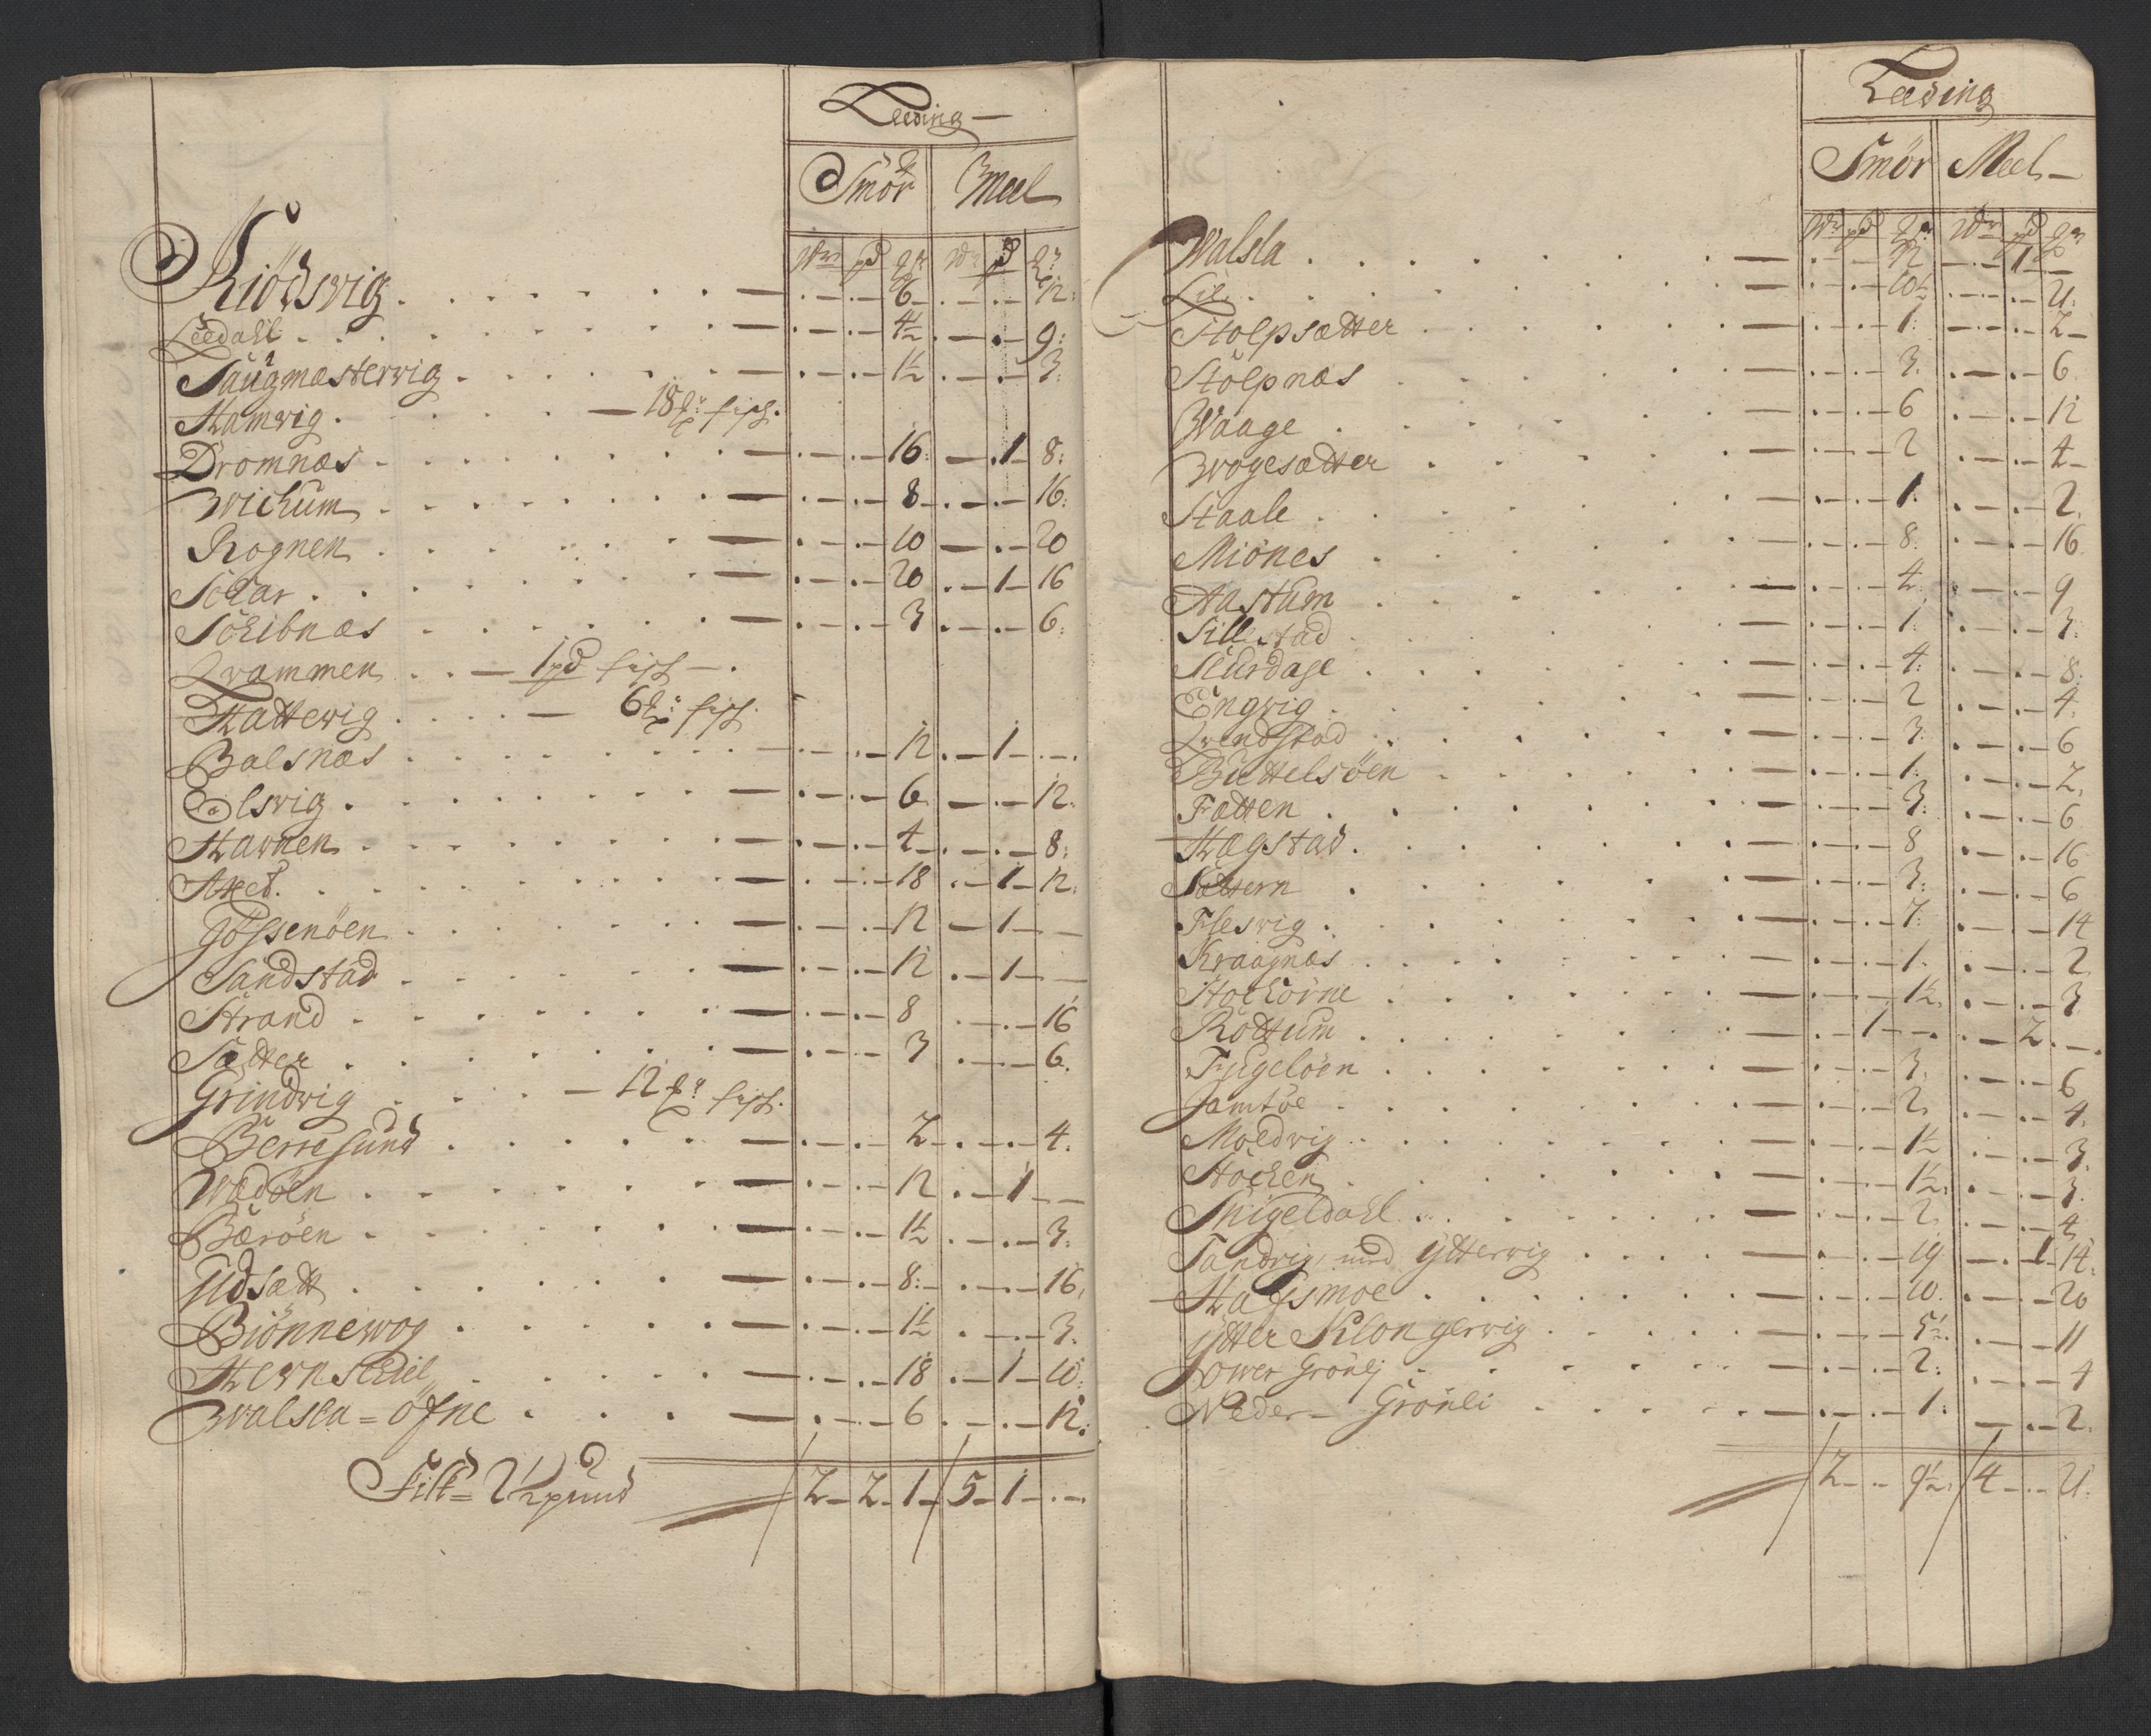 Leeding —
Smör Meel
Kiödsvig . . . . . . — . — . — 6 — . — . — 12:
Leedahl . . . . . . — . — . — 4½ . — . — 9:
Saugmæstervig . . . . . — . — . — 1½ . — . — 3:
Hamvig . . . — 18 fisch.
Dromnæs . . . . . . — . — . — 16: — . 1 — 8:
Wichum . . . . . . — . — . — 8 — . — . — 16:
Rognen . . . . . — . — . — 10 — . — 20
Solar . . . . . . — . — . — 20 . — 1 — 16
Sökibnæs . . . . . — . — . — 3 . — . — 6:
Qvammen . . — 1 pd fisch — .
Hattevig . . . . — 6 fisch.
Balsnæs . . . . . . — . — . — 12 . — 1 — . — .
Elsvig . . . . . . — . — . — 6 — . — 12.
Havnen . . . . . . — . — . — 4 — . — . — 8:
Aset . . . . . . — . — . — 18 . — 1 — 12.
Jössenöen . . . . . — . — . — 12 — 1 — —
Sandstad . . . . . — . — . — 12 . — 1 — —
Strand . . . . . . — . — . — 8 . — . — 16
Sætter . . . . . . — . — . — 3 . — . — 6.
Grindvig . . . — 12 fisch.
Berresund . . . . . — . — . — 2 — . — . — 4.
Wedöen . . . . . . — . — . — 12 . — 1 — —
Bæröen . . . . . . — . — . — 1½ . — . — 3:
Udsætt . . . . . — . — . — 8: — . — . — 16.
Biönnewog . . . . . — . — . — 1½ . — . — 3.
Hernskiel . . . . . — . — . — 18 . — 1 — 10:
Walsla = öfne . . . — . — . — 6 . — . — 12:
Fisk = 2½ pund 2 — 2 — 1 — 5 — 1 — . —
Leeding
Smör Meel —
Walsla . . . . . . — . — . — 12 — . 1 —
Lie . . . . . . — . — . — 10½ . — . — 21.
Stolpsætter . . . . . — . — . — 1: . — . — 2 —
Stölpnæs . . . . . — . — . — 3. . — . — 6.
Waage . . . . . . — . — . — 6 . — . — 12
Wogesætter . . . . . — . — . — 2 . — . — 4 —
Staale . . . . . — . — . — 1. . — . — 2.
Miönes . . . . . — . — . — 8. . — . — 16
Aastum . . . . . — . — . — 4. . — . — 9
Sillestad . . . . . — . — . — 1: . — . — 3:
Skurdage . . . . . — . — . — 4: . — . — 8:
Engvig . . . . . — . — . — 2 . — . — 4.
Qvendstad . . . . . — . — . — 3. . — . — 6
Buttelsöen . . . . . — . — . — 1. . — . — 2.
Fætten . . . . . — . — . — 3: . — . — 6
Hægstad . . . . . — . — . — 8 . — . — 16
Sættern . . . . . — . — . — 3: . — . — 6
Flesvig . . . . . — . — . — 7: . — . — 14
Kraagnæs . . . . . — . — . — 1. . — . — 2
Stockörne . . . . . — . — . — 1½. . — . — 3
Röttum . . . . . — . — 1 — . . — 2 . — .
Fugelöen . . . . . — . — . — 3. . — . — 6
Jamtöe . . . . . — . — . — 2. . — . — 4.
Moldvig . . . . . — . — . — 1½ . — . — 3.
Stöcken . . . . . — . — . — 1½. . — . — 3.
Snigeldahl . . . . . — . — . — 2. . — . — 4
Sandvig med Yttervig . . . . — . — . — 19 — . 1 — 14.
Hafsmoe . . . . . — . — . — 10. . — . — 20
Ytter Klongervig . . . . — . — . — 5½. . — . — 11
Ower Grönlj . . . . . — . — . — 2: . — . — 4
Neder — Grönli . . . . — . — . — 1: — . — 2.
2 — . — 9½. 4 — . — 21.